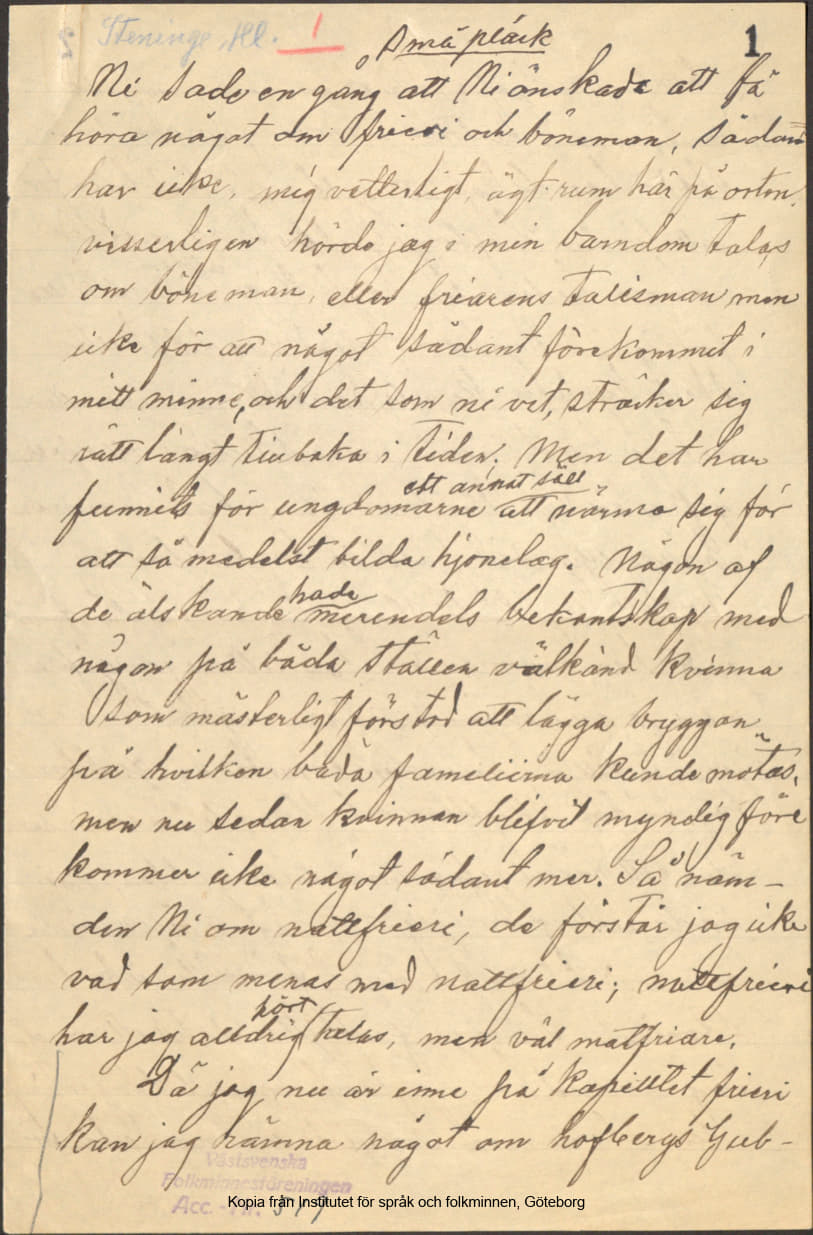 Steninge, Hl. 1
Småplåck
1
Ni sade en gång att Ni önskade att få
höra något om frieri och böneman, sådant
har icke, mig vetterligt, ägt rum här på orten,
visserligen hörde jag i min barndom talas
om böneman, eller friarens talisman men
icke för att något sådant förekommit i
mitt minne, och det som ni vet, sträcker sig
rätt långt tillbaka i tiden. Men det har
ett annat sätt
funnits för ungdomarne att närma sig för
att så medelst bilda hjonelag. Någon af
hade
de älskande merendels bekantskap med
någon på båda ställen välkänd kvinna
som mästerligt förstod att lägga bryggan
på hvilken båda fameliirna kunde mötas,
men nu sedan kvinnan blifvit myndig före
kommer icke något sådant mer. Så näm-
den Ni om nattfrieri, de förstår jag icke
vad som menas med nattfrieri; nattfrieri
hört
har jag alldrig talas, men väl matfriare.
Då jag nu är inne på kapittlet frieri
kan jag nämna något om hofbergs Gub-
Västsvenska
Folkminnesföreningen
Acc. - Nr.
Kopia från Institutet för språk och folkminnen, Göteborg